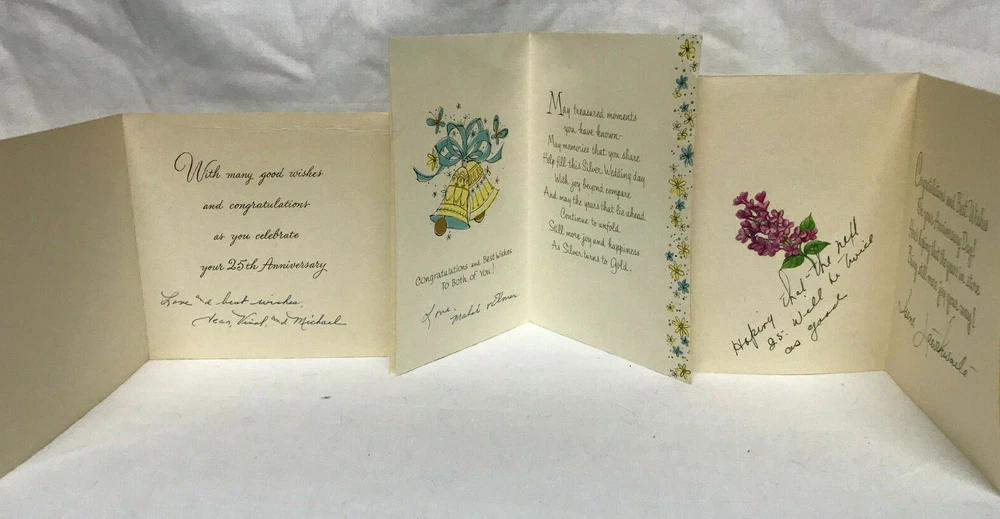 With many good wishes
and congratulations
as you celebrate
your 25th Anniversary
Love and best wishes,
and Michael
Congratulations and Best Wishes
To Both of You!
Love,
Mabel & Elmer
May treasured moments
you have known—
May memories that you share
Help fill this Silver Wedding day
With joy beyond compare
And may the years that lie ahead
Continue to unfold
Still more joy and happiness
As Silver turns to Gold.
Hoping that the next
25 will be twice
as good
Congratulations and Best Wishes
On your Anniversary Day!